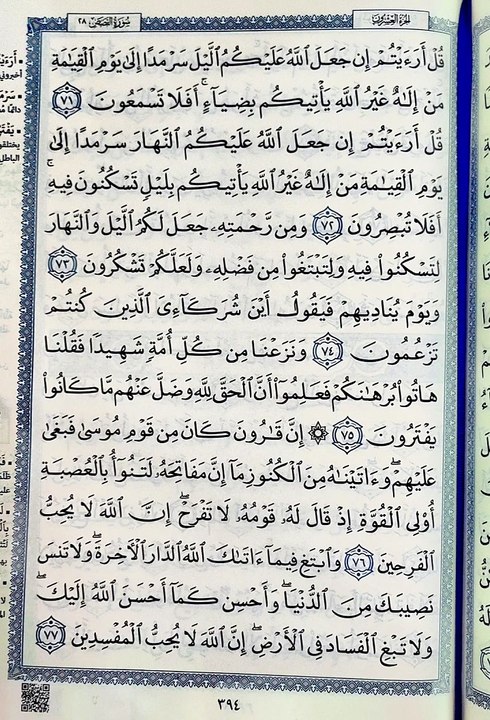 الجزء العشرون
سورة القصص ٢٨
قُلْ أَرَءَيْتُمْ إِن جَعَلَ ٱللَّهُ عَلَيْكُمُ ٱلَّيْلَ سَرْمَدًا إِلَىٰ يَوْمِ ٱلْقِيَٰمَةِ
مَنْ إِلَٰهٌ غَيْرُ ٱللَّهِ يَأْتِيكُم بِضِيَآءٍ ۖ أَفَلَا تَسْمَعُونَ ٧١
قُلْ أَرَءَيْتُمْ إِن جَعَلَ ٱللَّهُ عَلَيْكُمُ ٱلنَّهَارَ سَرْمَدًا إِلَىٰ
يَوْمِ ٱلْقِيَٰمَةِ مَنْ إِلَٰهٌ غَيْرُ ٱللَّهِ يَأْتِيكُم بِلَيْلٍ تَسْكُنُونَ فِيهِ ۚ
أَفَلَا تُبْصِرُونَ ٧٢ وَمِن رَّحْمَتِهِۦ جَعَلَ لَكُمُ ٱلَّيْلَ وَٱلنَّهَارَ
لِتَسْكُنُوا۟ فِيهِ وَلِتَبْتَغُوا۟ مِن فَضْلِهِۦ وَلَعَلَّكُمْ تَشْكُرُونَ ٧٣
وَيَوْمَ يُنَادِيهِمْ فَيَقُولُ أَيْنَ شُرَكَآءِىَ ٱلَّذِينَ كُنتُمْ
تَزْعُمُونَ ٧٤ وَنَزَعْنَا مِن كُلِّ أُمَّةٍ شَهِيدًا فَقُلْنَا
هَاتُوا۟ بُرْهَٰنَكُمْ فَعَلِمُوٓا۟ أَنَّ ٱلْحَقَّ لِلَّهِ وَضَلَّ عَنْهُم مَّا كَانُوا۟
يَفْتَرُونَ ٧٥ ۞ إِنَّ قَٰرُونَ كَانَ مِن قَوْمِ مُوسَىٰ فَبَغَىٰ
عَلَيْهِمْ ۖ وَءَاتَيْنَٰهُ مِنَ ٱلْكُنُوزِ مَآ إِنَّ مَفَاتِحَهُۥ لَتَنُوٓأُ بِٱلْعُصْبَةِ
أُو۟لِى ٱلْقُوَّةِ إِذْ قَالَ لَهُۥ قَوْمُهُۥ لَا تَفْرَحْ ۖ إِنَّ ٱللَّهَ لَا يُحِبُّ
ٱلْفَرِحِينَ ٧٦ وَٱبْتَغِ فِيمَآ ءَاتَىٰكَ ٱللَّهُ ٱلدَّارَ ٱلْءَاخِرَةَ ۖ وَلَا تَنسَ
نَصِيبَكَ مِنَ ٱلدُّنْيَا ۖ وَأَحْسِن كَمَآ أَحْسَنَ ٱللَّهُ إِلَيْكَ ۖ
وَلَا تَبْغِ ٱلْفَسَادَ فِى ٱلْأَرْضِ ۖ إِنَّ ٱللَّهَ لَا يُحِبُّ ٱلْمُفْسِدِينَ ٧٧
٣٩٤